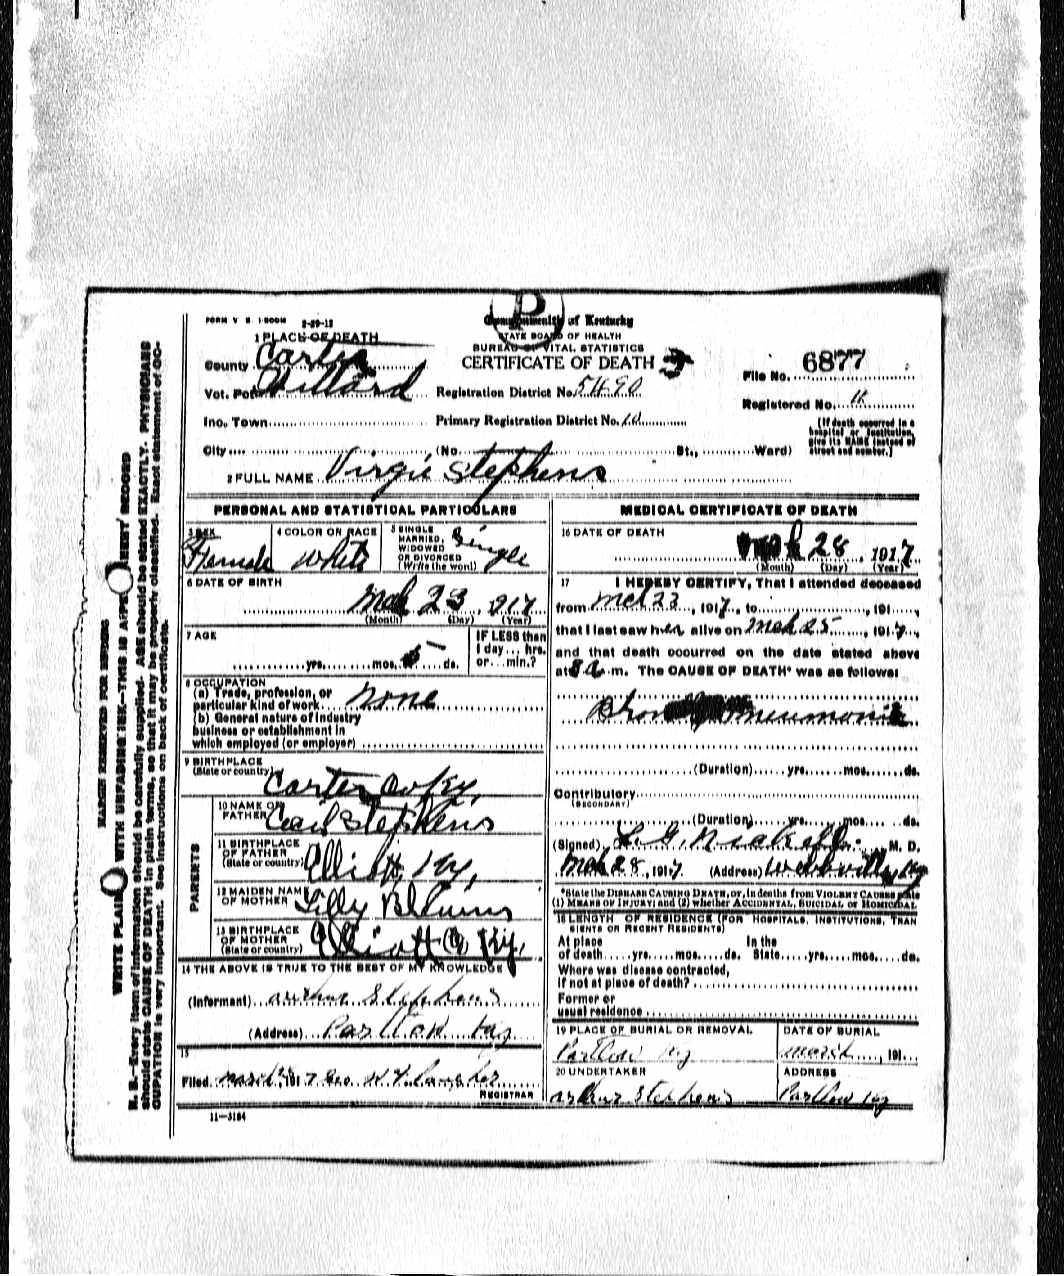 FORM V. S. 1-500M 2-29-12
Commonwealth of Kentucky
STATE BOARD OF HEALTH
BUREAU OF VITAL STATISTICS
CERTIFICATE OF DEATH
1 PLACE OF DEATH
County Carter
Vot. Pct. Willard
Inc. Town
City (No. St., Ward)
Registration District No. 5490
Primary Registration District No. 10
File No. 6877
Registered No. 11
(If death occurred in a
hospital or institution,
give its NAME instead of
street and number.)
2 FULL NAME Virgie Stephens
PERSONAL AND STATISTICAL PARTICULARS
3 SEX Female
4 COLOR OR RACE White
5 SINGLE
MARRIED,
WIDOWED
OR DIVORCED
(Write the word) Single
6 DATE OF BIRTH
Mch 23, 917
(Month) (Day) (Year)
7 AGE
yrs. mos. 5 ds.
IF LESS than
1 day... hrs.
or... min.?
8 OCCUPATION
(a) Trade, profession, or
particular kind of work None
(b) General nature of industry
business or establishment in
which employed (or employer)
9 BIRTHPLACE
(State or country) Carter Co Ky,
PARENTS
10 NAME OF
FATHER Cecil Stephens
11 BIRTHPLACE
OF FATHER
(State or country) Elliott, Ky,
12 MAIDEN NAME
OF MOTHER Lilly
13 BIRTHPLACE
OF MOTHER
(State or country) Elliott Co Ky,
14 THE ABOVE IS TRUE TO THE BEST OF MY KNOWLEDGE
(Informant) Arthur Stephens
(Address) Partlow Ky
15
Filed March 1917 Geo.
REGISTRAR
11—3184
MEDICAL CERTIFICATE OF DEATH
16 DATE OF DEATH
Mch 28, 1917
(Month) (Day) (Year)
17 I HEREBY CERTIFY, That I attended deceased
from Mch 23, 1917, to 191
that I last saw her alive on Mch 25, 1917,
and that death occurred on the date stated above
at 8 a.m. The CAUSE OF DEATH* was as follows:
Pneumonia
(Duration) yrs. mos. ds.
Contributory
(SECONDARY)
(Duration) yrs. mos. ds.
(Signed) L. G. Nickell M. D.
Mch 28, 1917 (Address) Webbville, Ky
*State the DISEASE CAUSING DEATH, or, in deaths from VIOLENT CAUSES state
(1) MEANS OF INJURY; and (2) whether ACCIDENTAL, SUICIDAL or HOMICIDAL
18 LENGTH OF RESIDENCE (FOR HOSPITALS, INSTITUTIONS, TRAN
SIENTS OR RECENT RESIDENTS)
At place In the
of death yrs. mos. ds. State yrs. mos. ds.
Where was disease contracted,
if not at place of death?
Former or
usual residence
19 PLACE OF BURIAL OR REMOVAL
Partlow Ky
DATE OF BURIAL
March, 191
20 UNDERTAKER
Arthur Stephens
ADDRESS
Partlow Ky
MARGIN RESERVED FOR BINDING
WRITE PLAINLY WITH UNFADING INK—THIS IS A PERMANENT RECORD
N. B.—Every item of information should be carefully supplied. AGE should be stated EXACTLY. PHYSICIANS
should state CAUSE OF DEATH in plain terms, so that it may be properly classified. Exact statement of OC-
CUPATION is very important. See instructions on back of certificate.